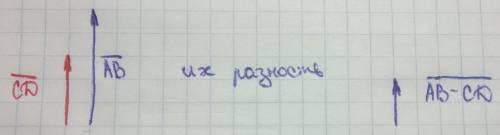 CD AB их разность AB-CD